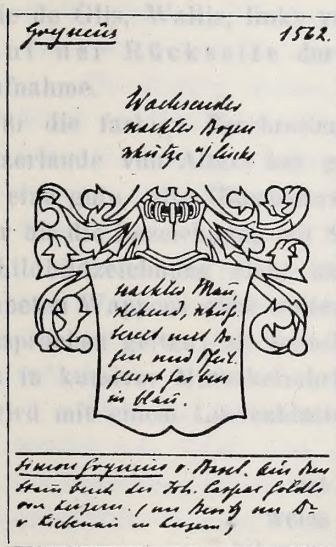 Gryneus 1562.
Wachsender
nackter Bogen
schütze n/ links
nackter Mann
stehend, schies-
send mit Bo-
gen und Pfeil.
farben
in blau.
Simon Gryneus v. Basel. Aus dem
Stammbuch des Joh. Caspar Göldli
von Luzern. /im Besitz von Dr
v. Liebenau in Luzern